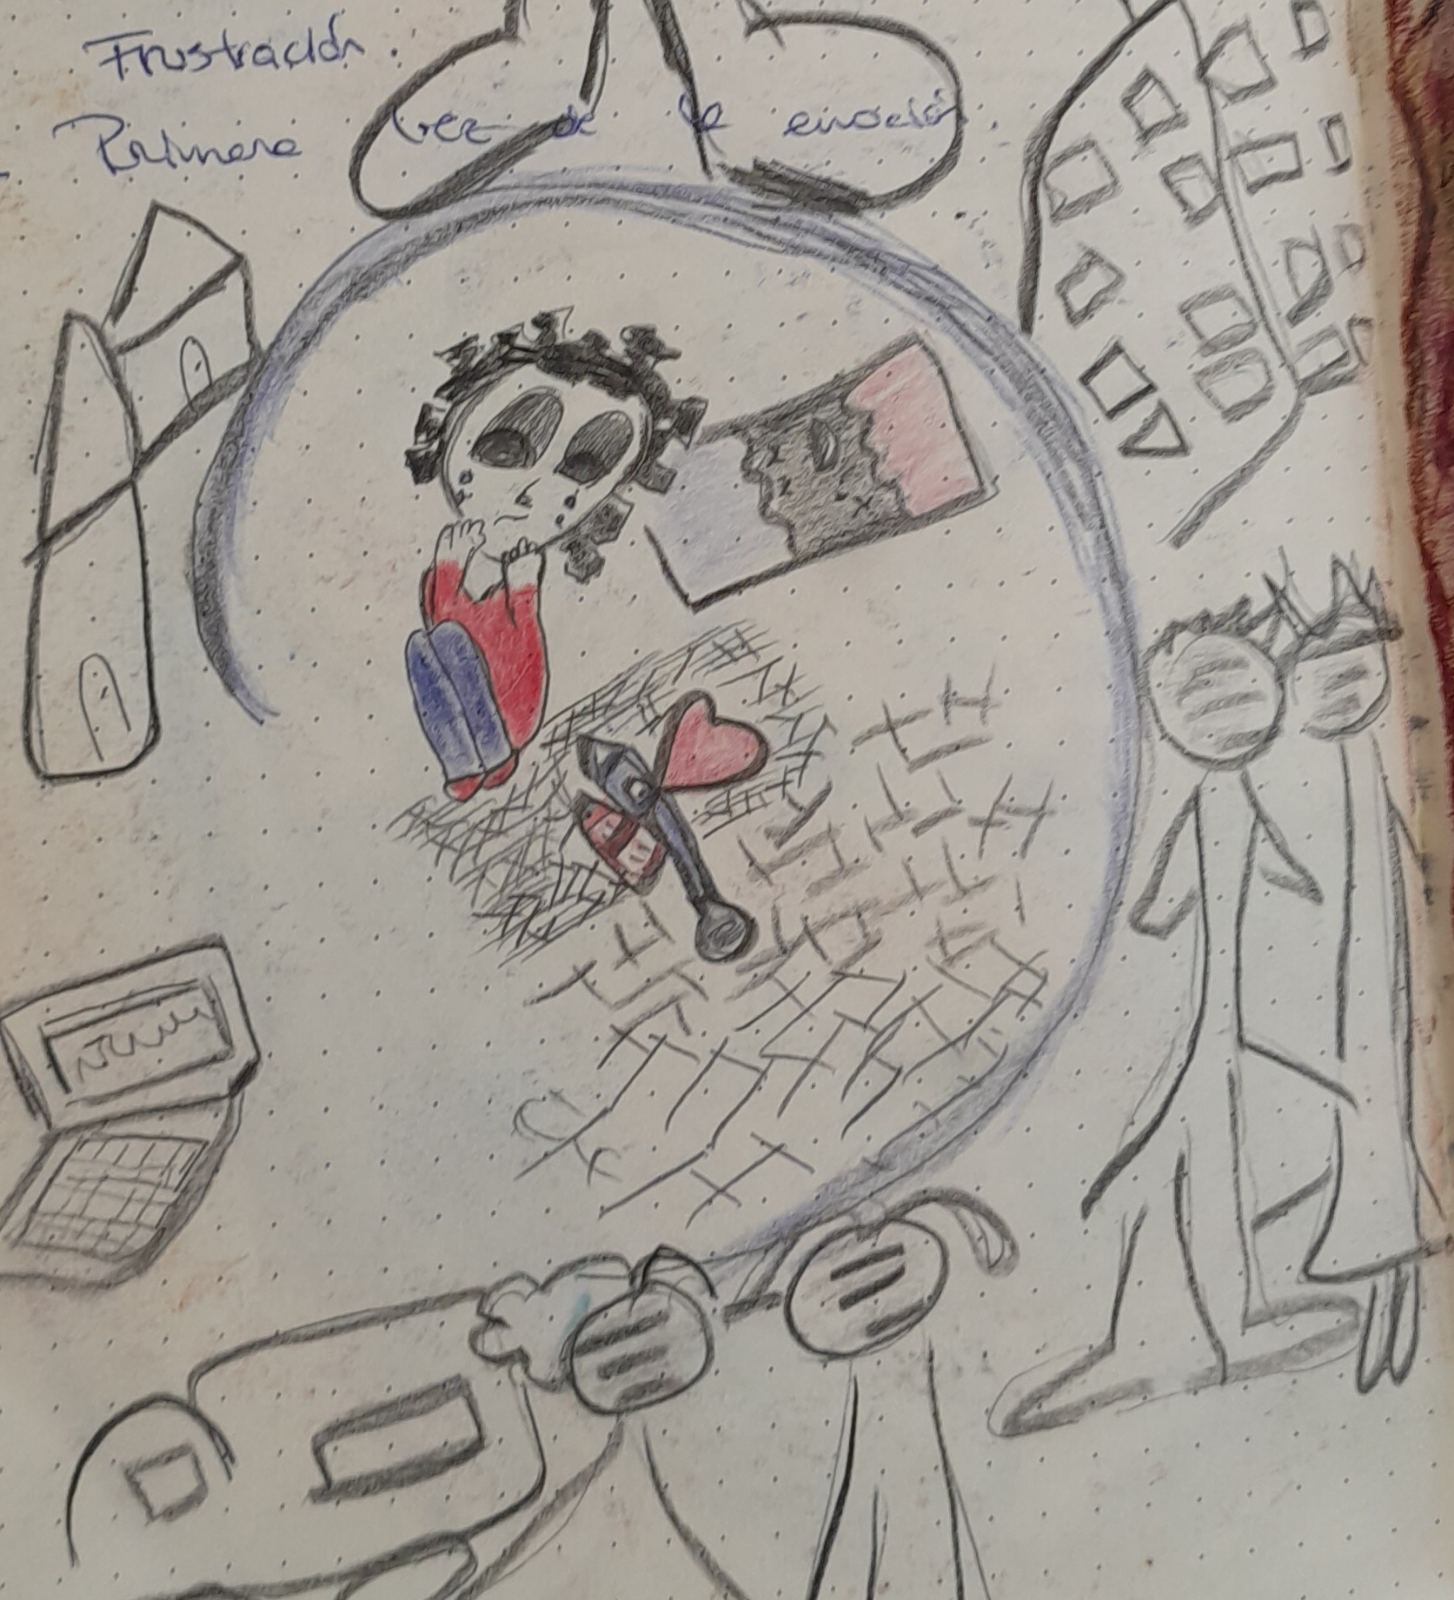 Frustración.
Primera vez de la emoción.